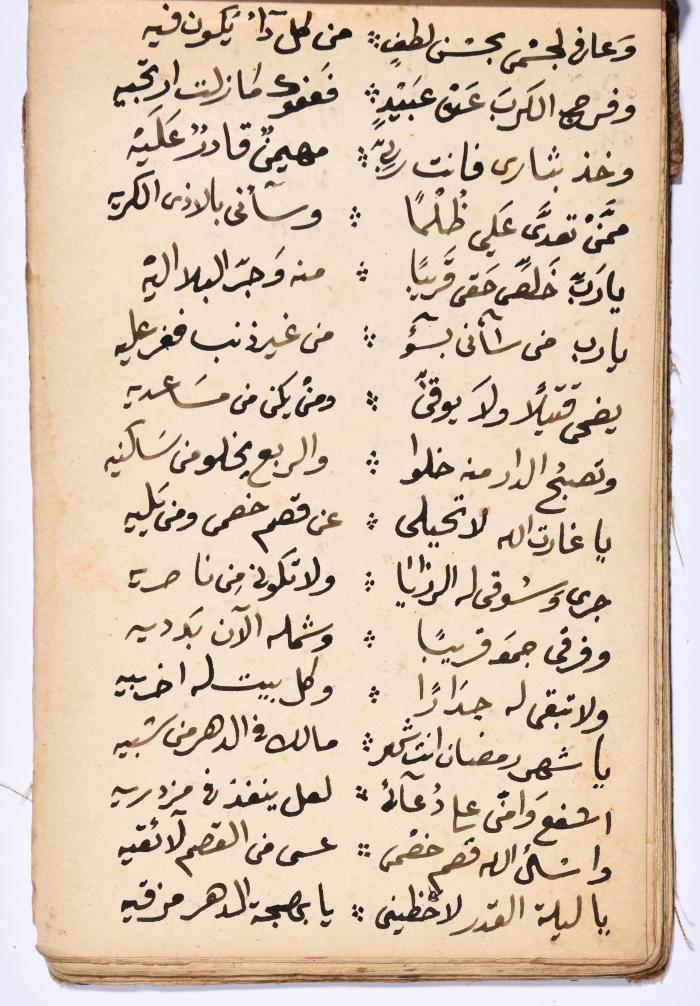 وعافى لجسمى بحسن لطفٍ ؞ من كل دآء يكون فيه
وفرج الكرب عن عبيدٍ ؞ فعفوك مازلت ارتجيه
وخذ بثارى فانت ربى ؞ مهيمن قادر عليه
ممن تعدى على ظلمًا ؞ وسآنى بالاذى الكريه
يارب خلص حقى قريبًا ؞ منه وجر البلا اليه
يارب من سآنى بسؤ ؞ من غير ذنب فغر عليه
يضحى قتيلًا ولا يوقى ؞ ومن يكن من مساعديه
وتصبح الدار منه خلوا ؞ والربع يخلو من ساكنيه
يا غارت الله لا تحيلى ؞ عن قصم خصمى ومن يليه
جرى وسوقى له الرزايا ؞ ولا تكونى من ناصريه
وفرقى جمعه قريبًا ؞ وشمله الآن بدديه
ولا تبقى له جدارًا ؞ وكل بيت له اخربيه
يا شهر رمضان انت شهر ؞ مالك فى الدهر من شبيه
اشفع وامن على دعآئى ؞ لعل ينفذ فى مزدريه
واسئل الله قصم خصمى ؞ عسى من القصم لا تقيه
يا ليلة القدر لاحظينى ؞ يا بهجة الدهر مزقيه